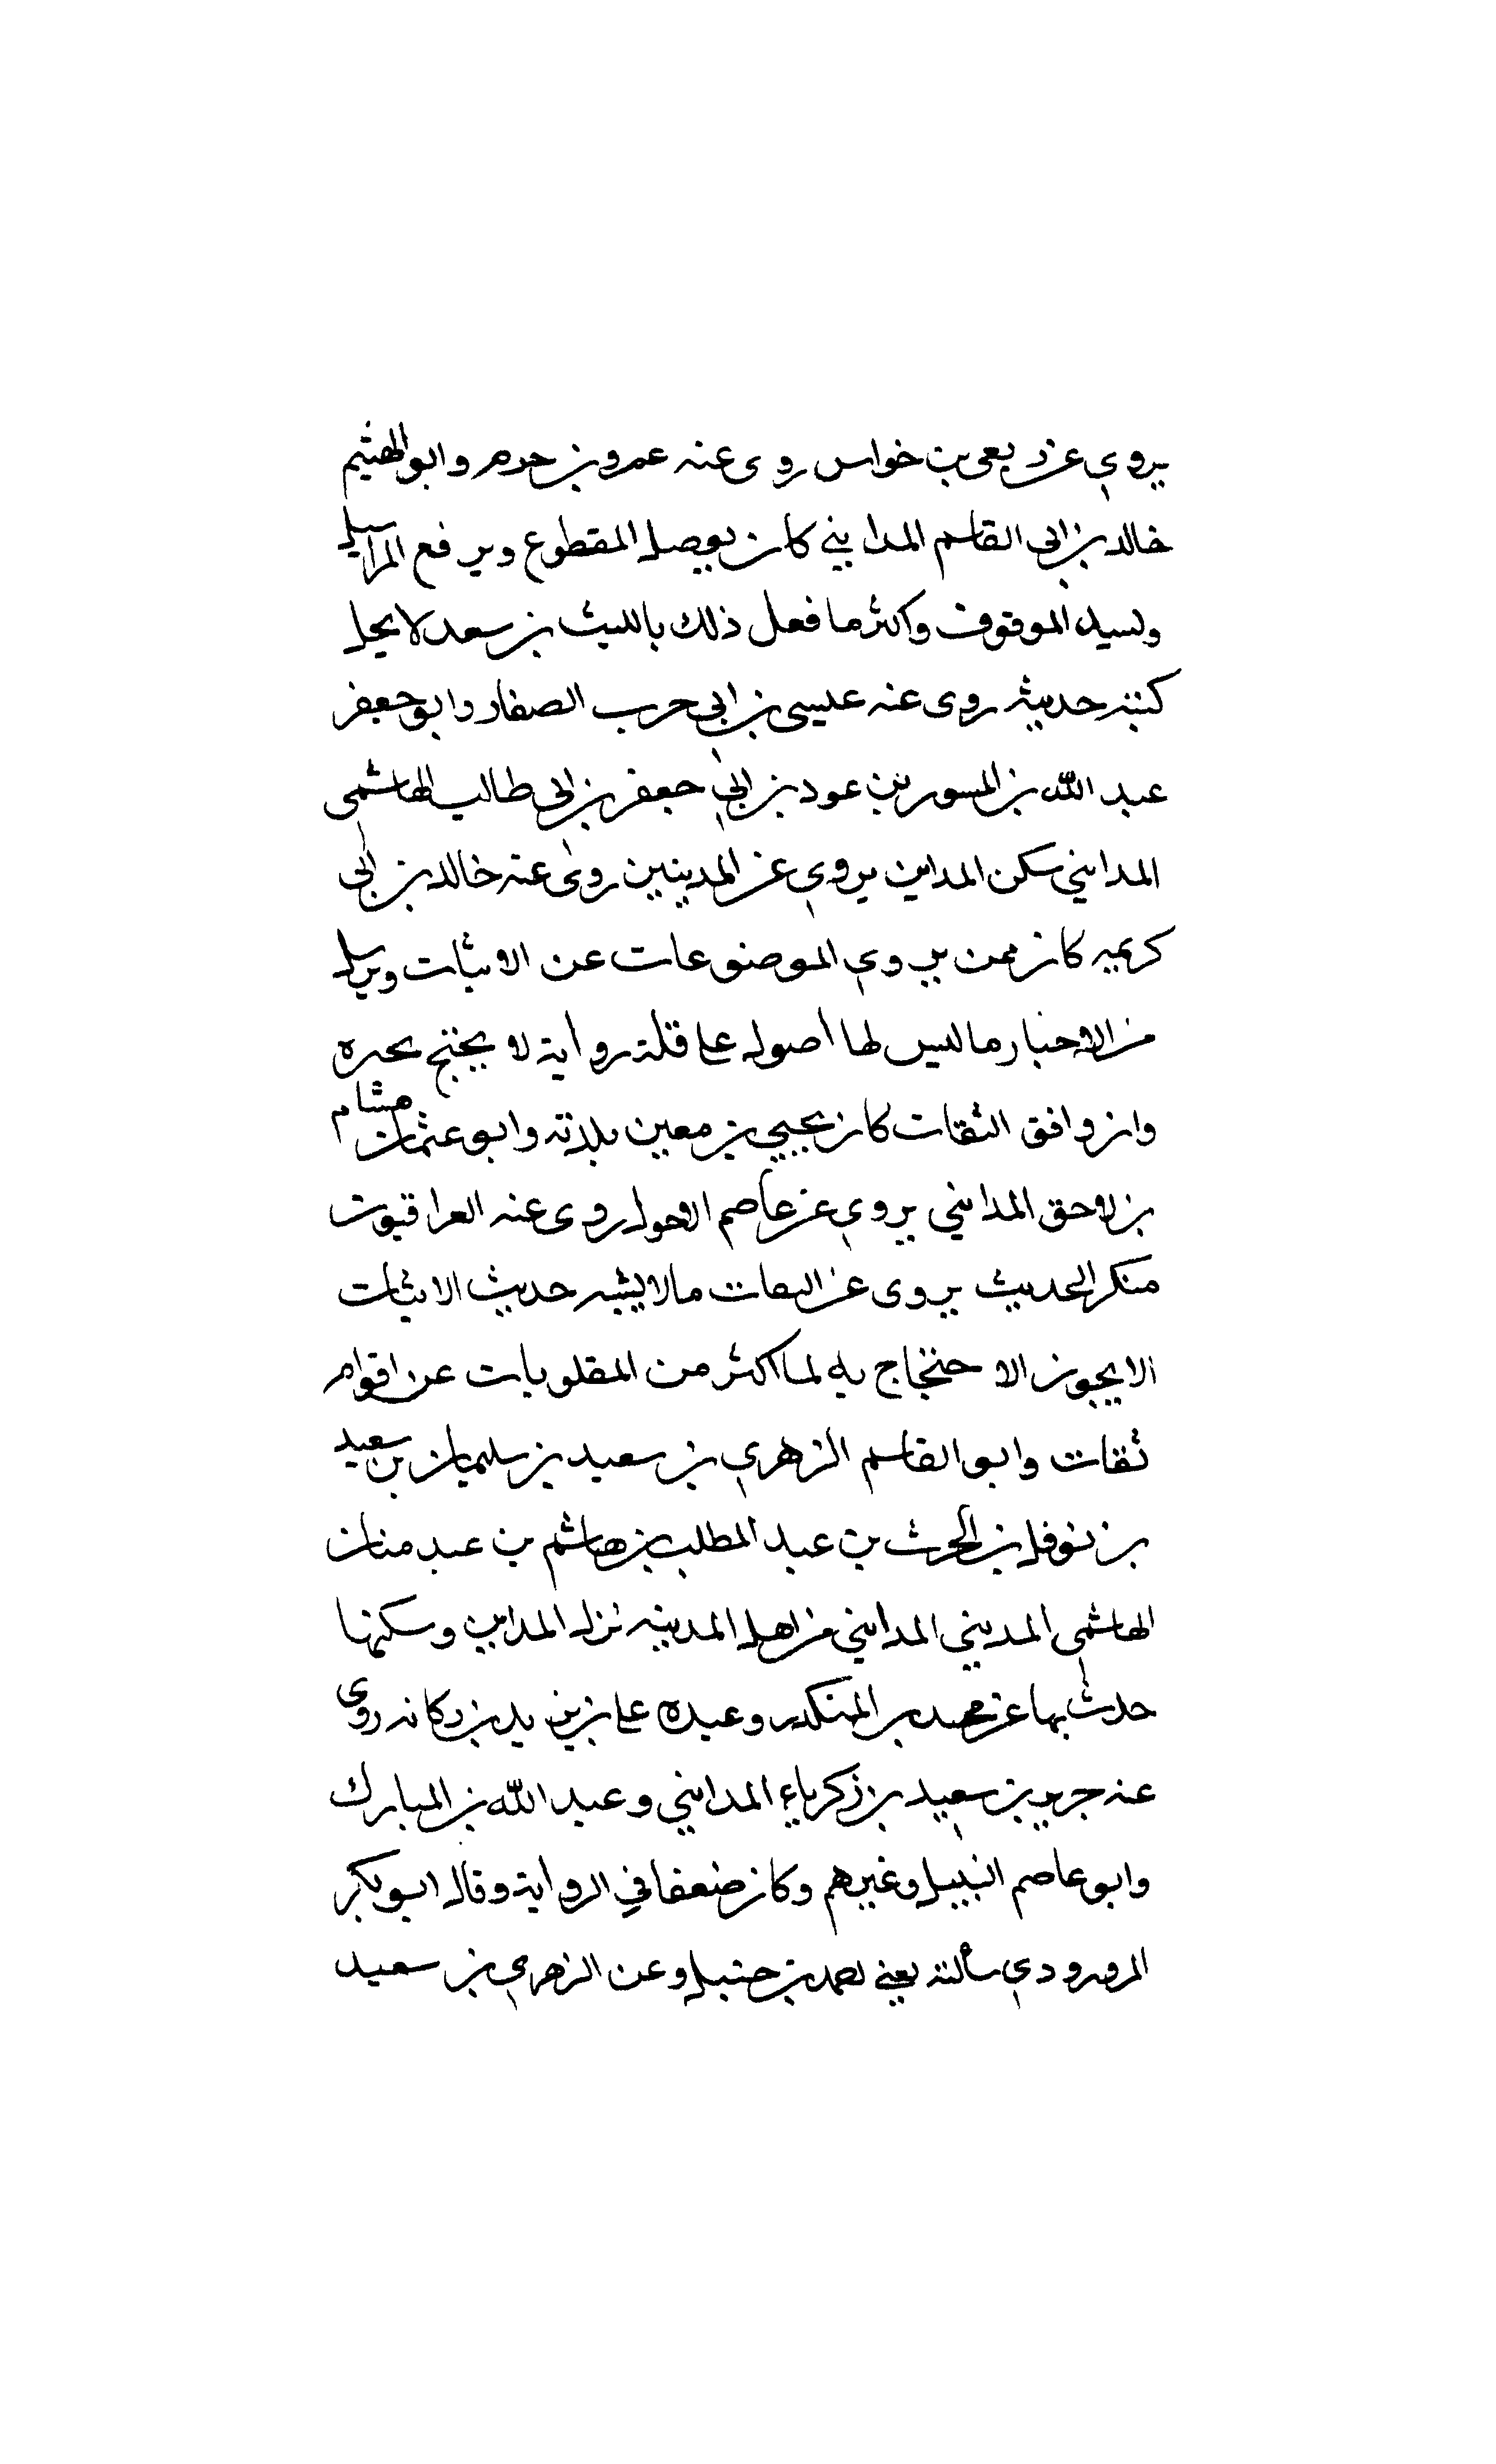 يروي عن ربعي بن خراس روى عنه عمرو بن حرم وابو الهيثم
خالد بن ابي القاسم المدايني كان يوصل المقطوع ويرفع المراسيل
ويسند الموقوف واكثر ما فعل ذلك بالليث بن سعد لا يحل
كتبه حديثه روى عنه عيسى بن ابي حرب الصفار وابو جعفر
عبد الله بن المسور بن عود بن ابي جعفر بن ابي طالب الهاشمي
المدايني سكن المداين يروي عن المدينين روى عنه خالد بن ابي
كريمه كان ممن يروي الموضوعات عن الاثبات ويرسل
من الاخبار ما ليس لها أصول على قلة رواية لا يحتج بخبره
وان وافق الثقات كان يحيي بن معين يكذبه وابو عثمان هشام
بن لاحق المدايني يروي عن عاصم الاحول روى عنه العراقيون
منكر الحديث يروى عن الثقات ما لا يشبه حديث الاثبات
الا يجوز الا حتجاج به لما اكثر من المقلوبات عن اقوام
ثقات وابو القاسم الزهري بن سعيد بن سليمان بن سعيد
بن نوفل بن الحرث بن عبد المطلب بن هاشم بن عبد مناف
الهاشمي المديني المدايني من اهل المدينه نزل المداين وسكنها
حدث بها عن محمد بن المنكدر وعبده على بن يزيد بن ركانه روى
عنه جرير بن سعيد بن زكرياء المدايني وعبد الله بن المبارك
وابو عاصم النبيل وغيرهم وكان ضعفا في الرواية وقال ابو بكر
المروروذي سألته يعني احمد بن حنبل وعن الزهري بن سعيد